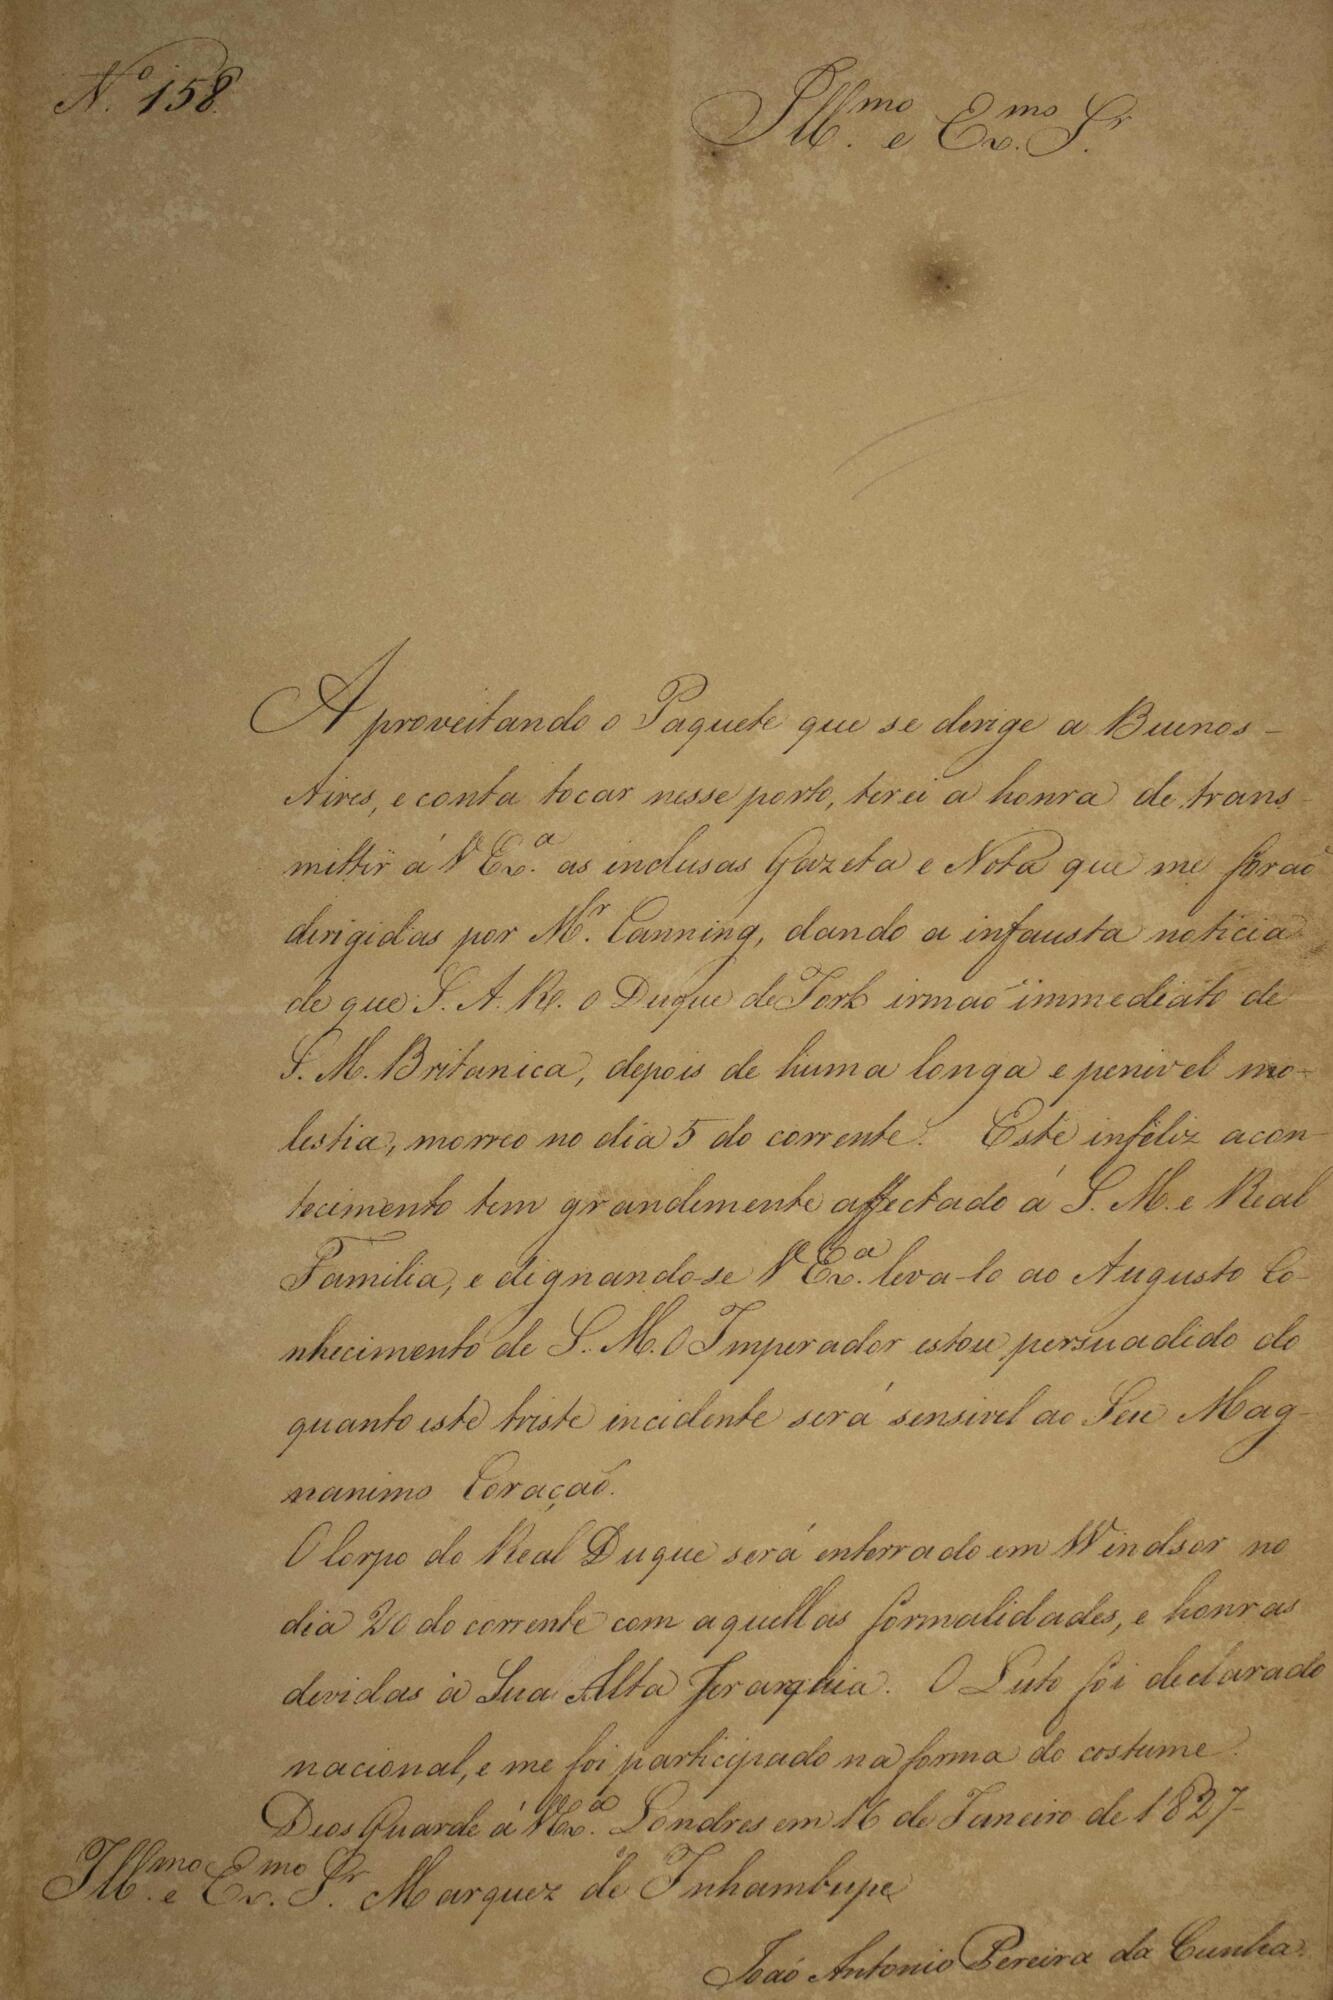 Nº 158.
Ill.mo e Ex.mo Sr.
Aproveitando o Paquete que se derige a Buenos-
Aires, e conta tocar nesse porto, terei a honra de trans-
mittir á V Ex.a as inclusas Gazeta e Nota que me foraõ
dirigidas por Mr. Canning, dando a infausta noticia
de que S. A. R. o Duque de York irmaõ immediato de
S. M. Britanica, depois de huma longa e penivel mo-
lestia, morreo no dia 5 do corrente. Este infeliz acon-
tecimento tem grandemente affectado á S. M. e Real
Familia, e dignando-se V Ex.a leva-lo ao Augusto Co-
nhecimento de S. M. O Imperador estou persuadido do
quanto este triste incidente será sensivel ao Seu Mag-
nanimo Coraçaõ.
O Corpo do Real Duque será enterrado em Windsor no
dia 20 do corrente com aquellas formalidades, e honras
devidas à Sua Alta Jerarquia. O Luto foi declarado
nacional, e me foi participado na forma do costume.
Deos Guarde á V Ex.a Londres em 16 de Janeiro de 1827-
Ill.mo e Ex.mo Sr. Marquez de Inhambupe
Joaõ Antonio Pereira da Cunha.